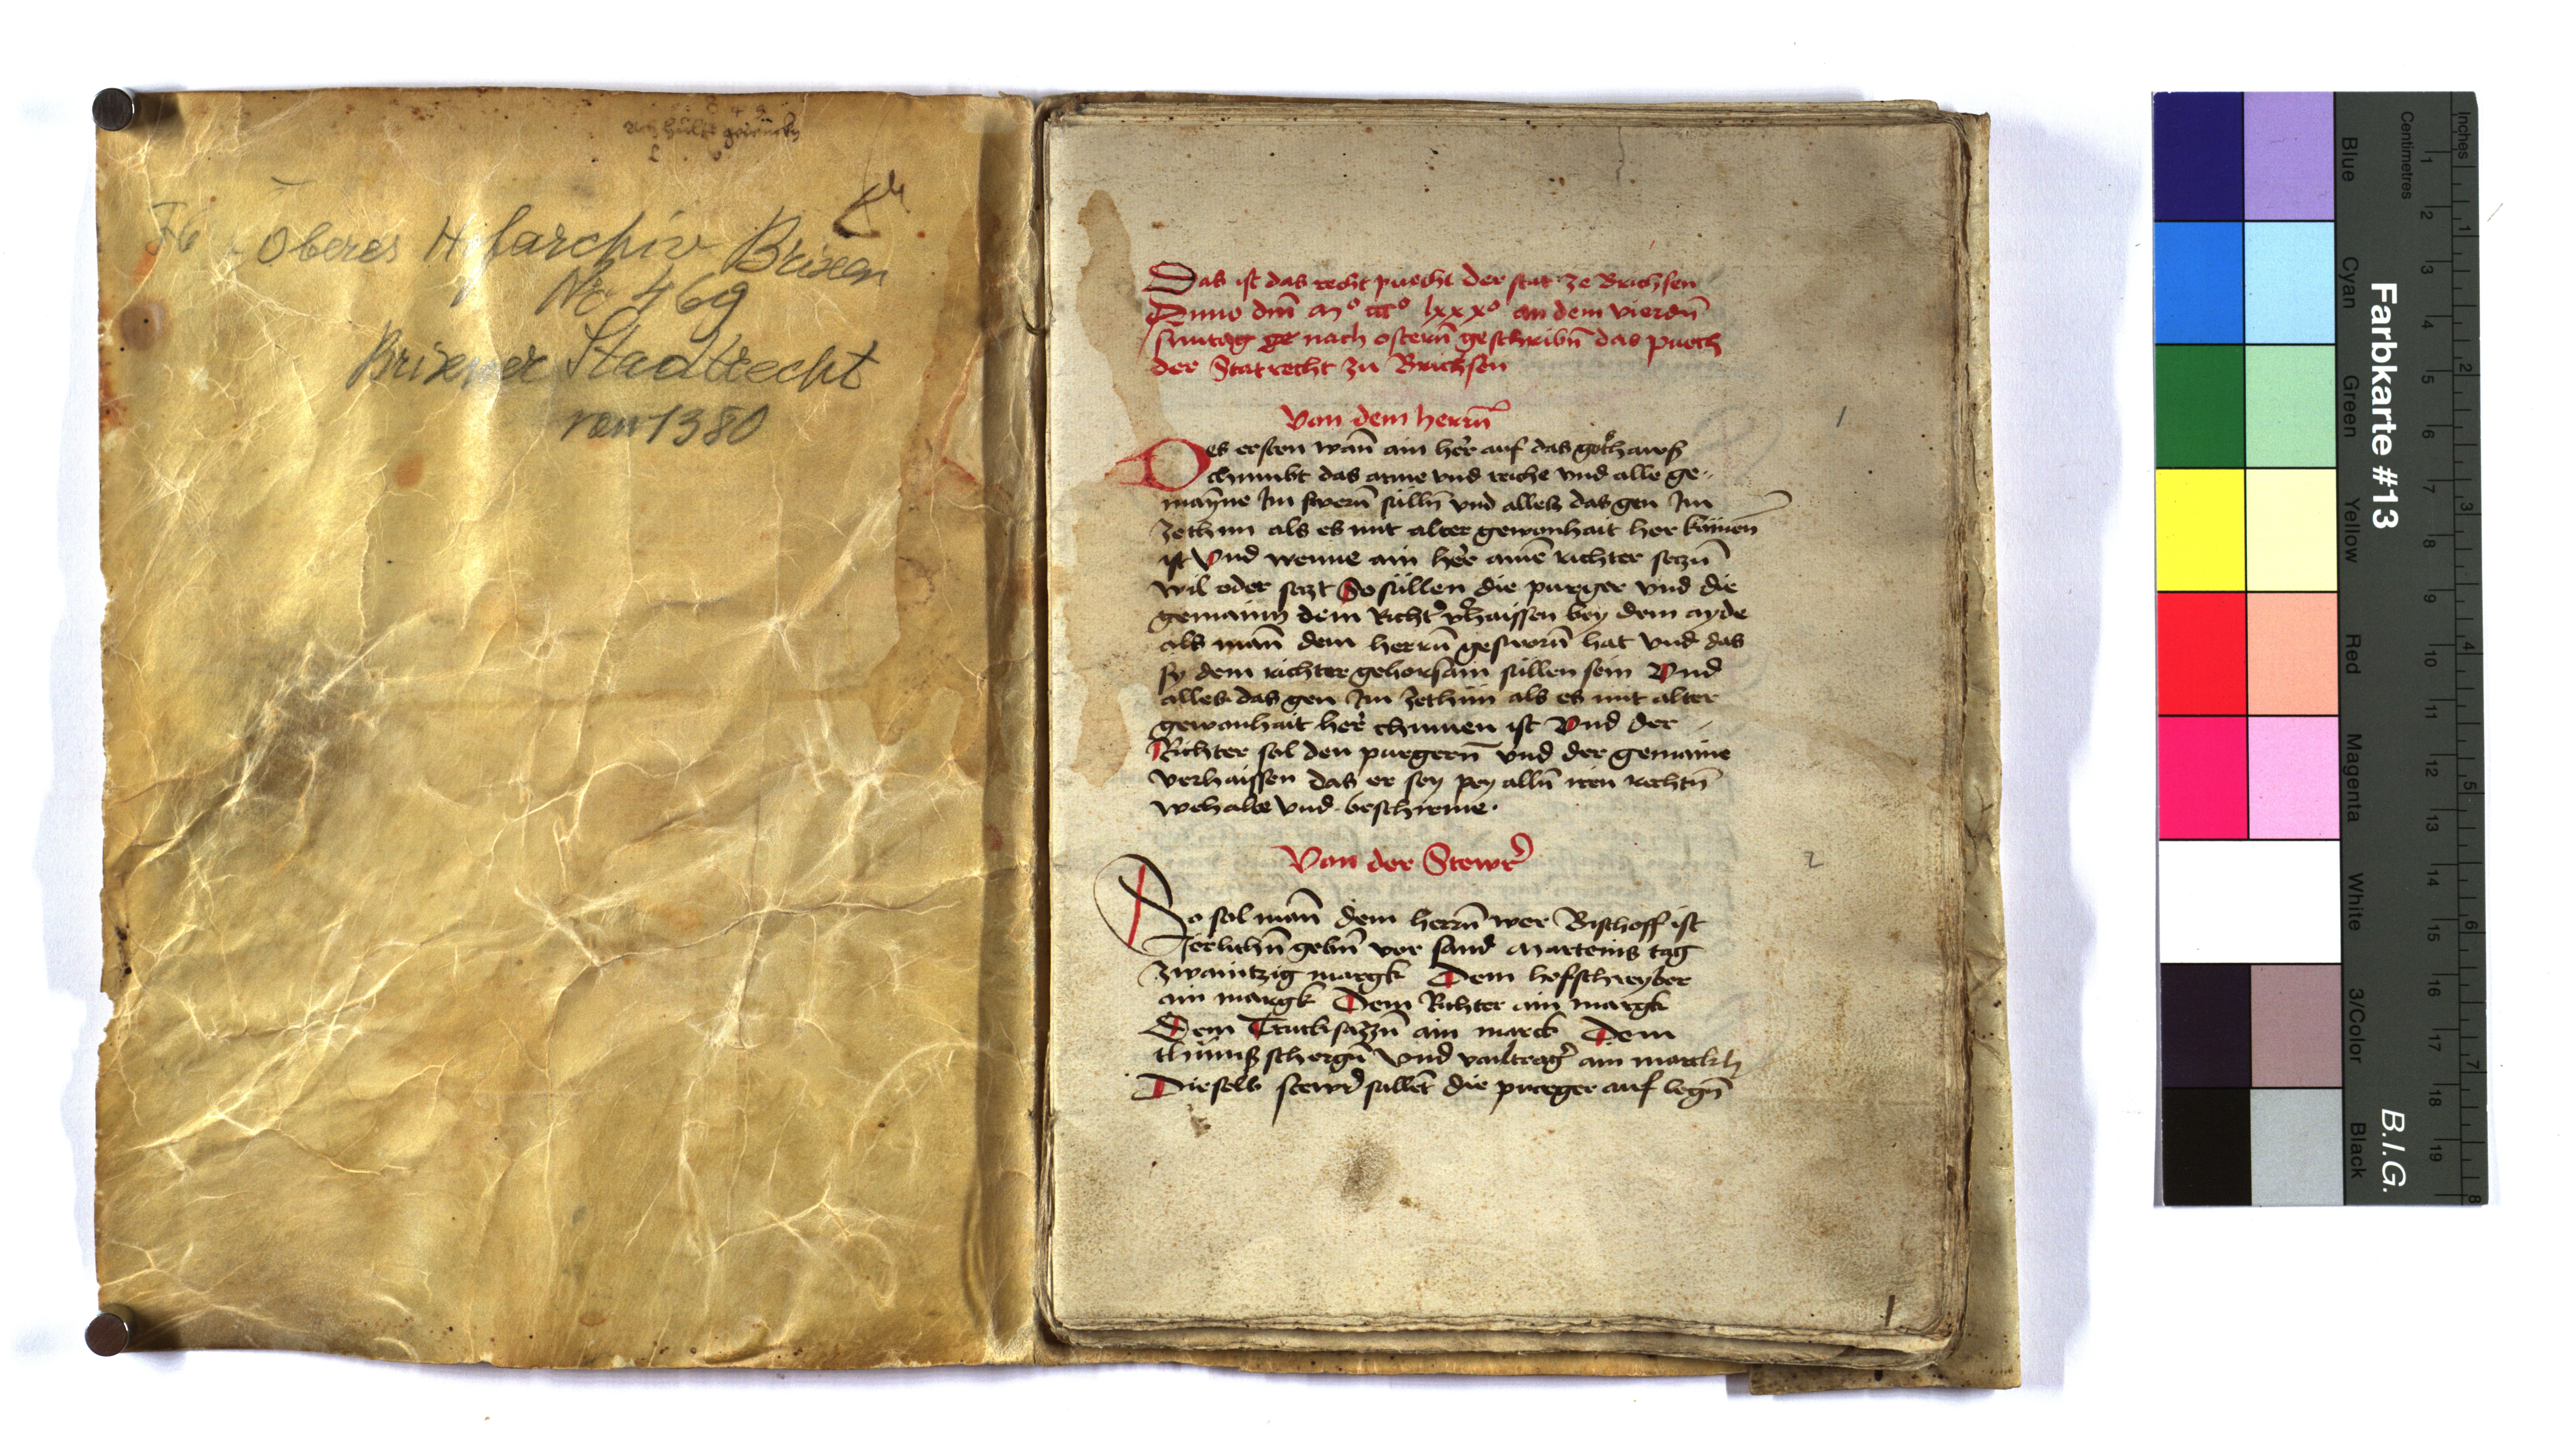 F6
Oberes Hofarchiv Brixen
No 469
Brixener Stadtrecht
von 1380
Das ist das recht puech der stat ze Brichsen
Anno dm̄ mº cccº lxxxº an dem vierdn̄
suntag nach ostern̄ geschribn̄ das puech
der Stat recht zu Brichsen
Von dem herrn̄
Des ersten wan̄ ain her auf das gotzhaws
chumbt das arme vnd reiche vnd alle ge-
mayne Im swern̄ sulln̄ vnd alles das gen Im
ze thun als es mit alter gewonhait her kumen
ist Vnd wenne ain her ainē richter seczn̄
wil oder sezt So süllen die purger vnd die
gemain dem Richt' v'haissen bey dem ayde
als man̄ dem herrn̄ gesworn̄ hat vnd das
sy dem richter gehorsam süllen sein Vnd
alles das gen Im ze thun als es mit alter
gewonhait her chumen ist Vnd der
Richter sol den purgern̄ vnd der gemaine
verhaissen das er sey pey alln̄ iren rechtn̄
wehalte vnd beschirme.
Von der Stewr
1
2
So sol man̄ dem herrn̄ wer Bischoff ist
Jerlichn̄ gebn̄ vor sand Marteins tag
zwaintzig margk Dem hofschreyber
ain margk Dem Richter ain margk
Dem Truchsäzzn̄ ain marck Dem
schergn̄ vnd ain marckh
Dieselb stewr sullēt die purger auf legn̄
1
Farbkarte #13
B.I.G.
Blue
Cyan
Green
Yellow
Red
Magenta
White
3/Color
Black
Centimetres
1 2 3 4 5 6 7 8 9 10 11 12 13 14 15 16 17 18 19
Inches
1 2 3 4 5 6 7 8